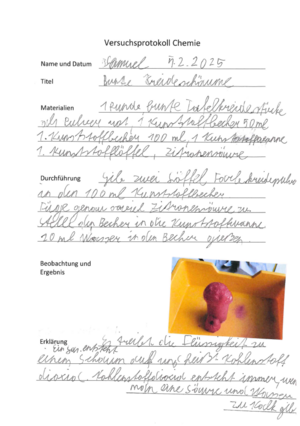 Versuchsprotokoll Chemie
Name und Datum Samuel 7.2.2025
Titel Bunte Kreideschäume
Materialien 1 runde bunte Tafelkreidestücke
als Pulver rot 1 Kunststoffbecher 50ml
1. Kunststoffbecher 100 ml, 1 Kunststoffwanne
1. Kunststofflöffel, Zitronensäure
Durchführung Gib zwei Löffel, Kreidepulver
in den 100 ml Kunststoffbecher
Füge genau soviel Zitronensäure zu
Stelle den Becher in die Kunststoffwanne
20 ml Wasser in den Becher gießen
Beobachtung und
Ergebnis
Erklärung Es treibt die Flüssigkeit zu
Ein Gas entsteht
einem Schaum auf und heißt Kohlenstoff
dioxid. Kohlenstoffdioxid entsteht immer, wen
man eine Säure und Wasser
zu Kalk gibt